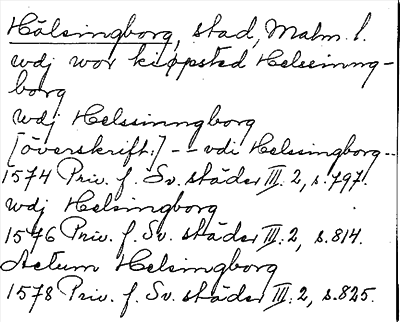 Hälsingborg, stad, Malm. l.
wdj wor kiøpsted Helssinng-
borg
wdj Helssinngborg
[överskrift:] -- vdi Helsingborg--
1574 Priv. f. Sv. städer III:2, s.797.
wdj Helsingborg
1576 Priv. f. Sv. städer III:2, s.814.
Actum Helsingborg
1578 Priv. f. Sv. städer III:2, s.825.